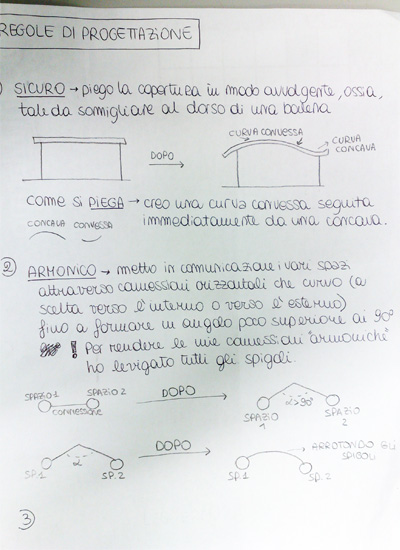 REGOLE DI PROGETTAZIONE
) SICURO → piego la copertura in modo avvolgente, ossia,
tale da somigliare al dorso di una balena
CURVA CONVESSA
CURVA
CONCAVA
DOPO
COME SI PIEGA → creo una curva convessa seguita
immediatamente da una concava.
CONCAVA CONVESSA
2) ARMONICO → metto in comunicazione i vari spazi
attraverso connessioni orizzontali che curvo (a
scelta verso l'interno o verso l'esterno)
fino a formare un angolo poco superiore ai 90°
! Per rendere le mie connessioni "armoniche"
ho levigato tutti gli spigoli.
SPAZIO 1 SPAZIO 2
CONNESSIONE
DOPO
α>90°
SPAZIO
1
SPAZIO
2
α
SP.1 SP.2
DOPO
ARROTONDO GLI
SPIGOLI
SP.1 SP.2
3